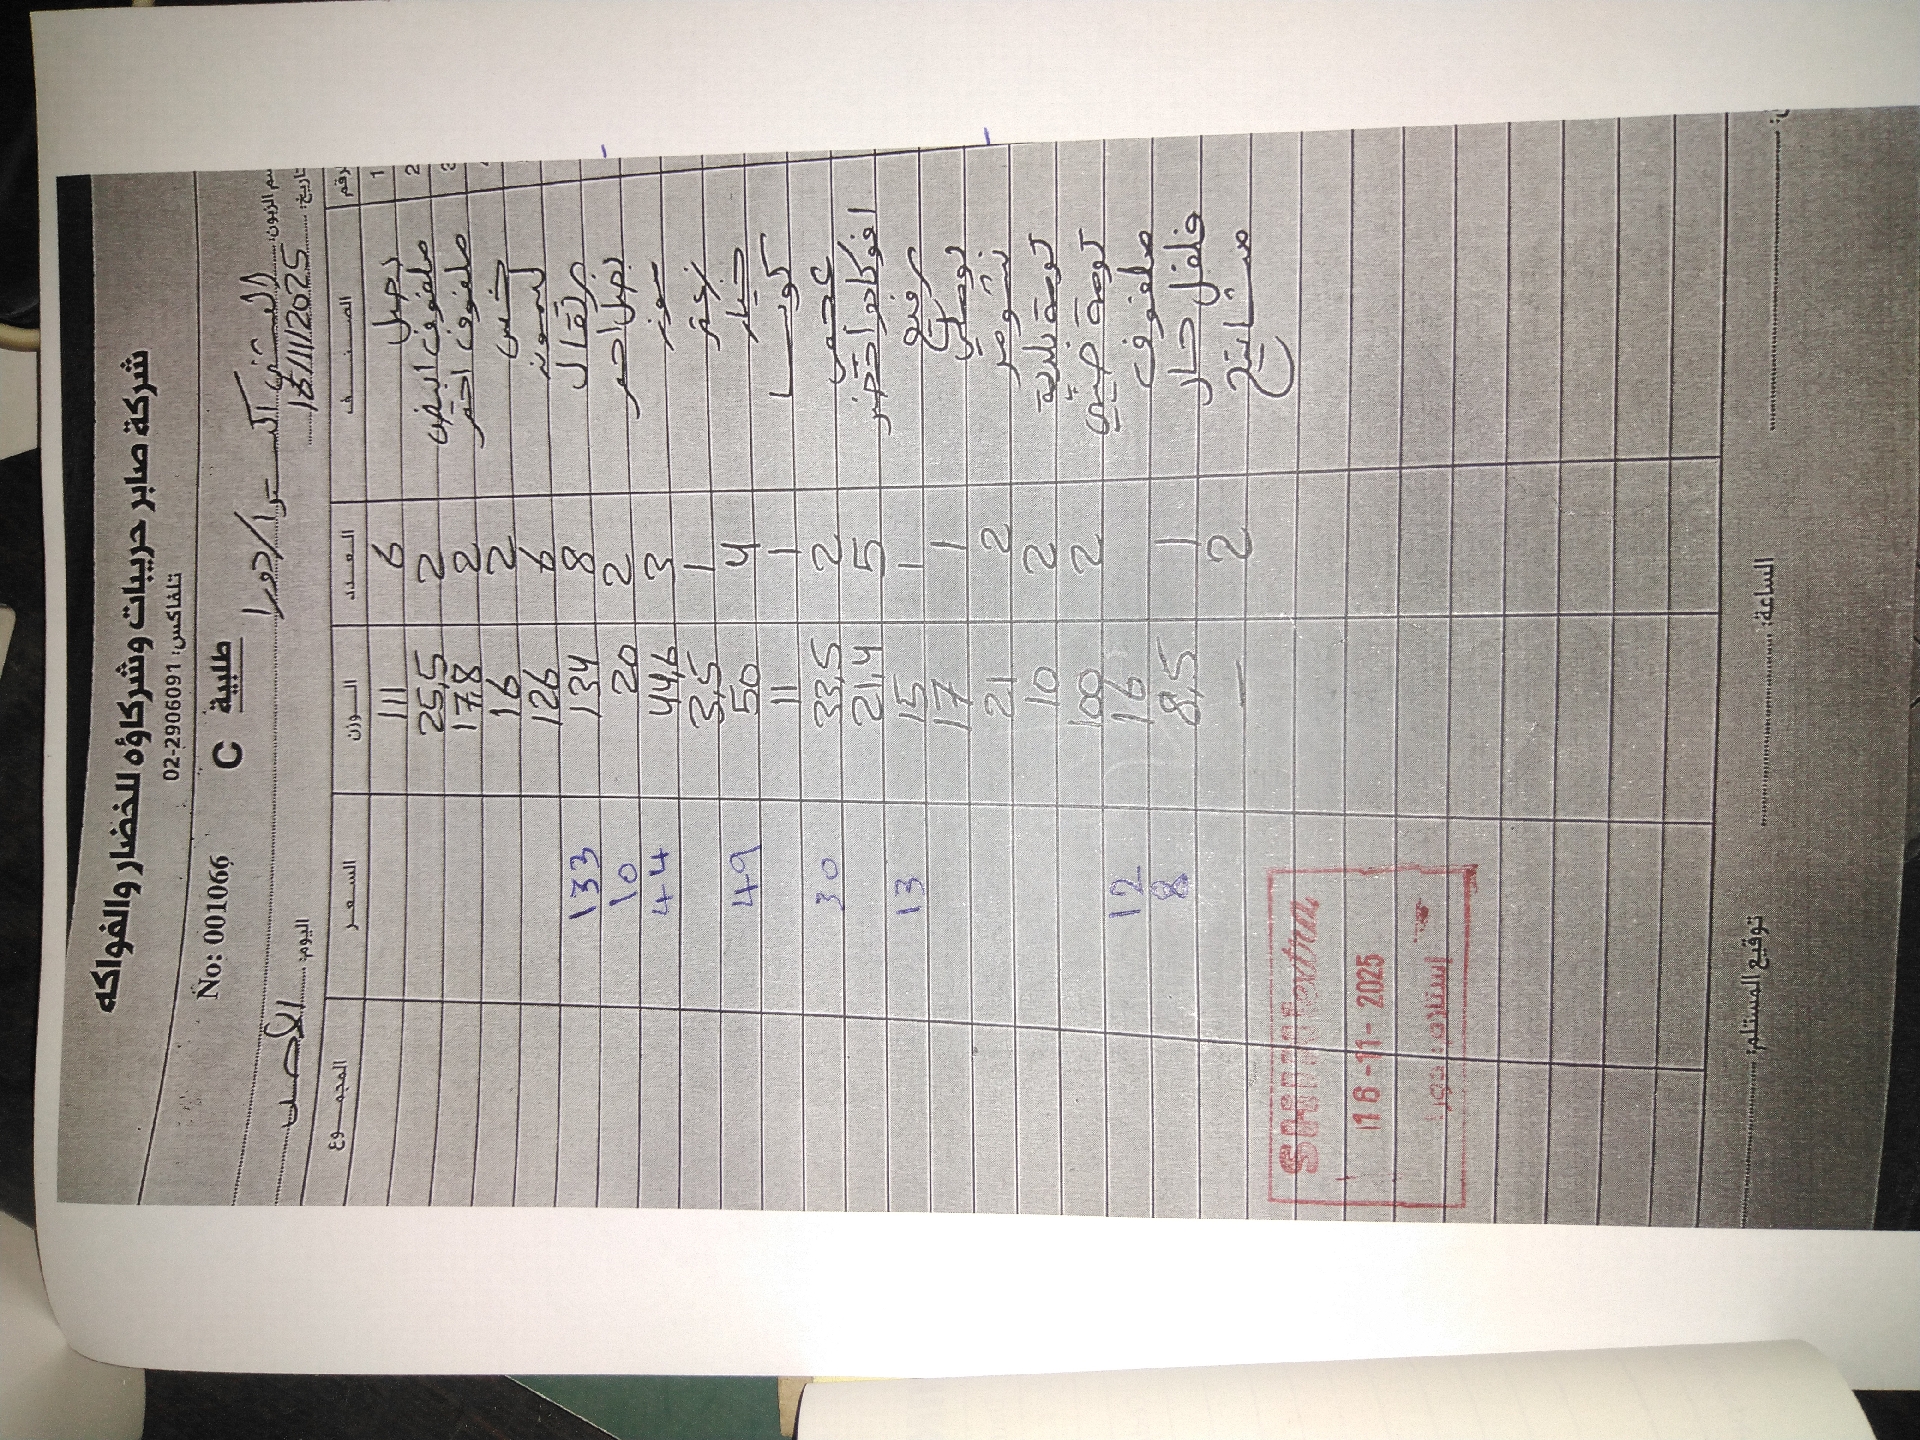 شركة صابر حريبات وشركاؤه للخضار والفواكه
تلفاكس: 02-2906091
No: 0001066 C طلبية
سم الزبون: دورا
اليوم: الأحد تاريخ: 16/11/2025
الرقم الصنف العدد الوزن السعر المجموع
1 بصل 6 111
2 ملفوف ابيض 2 25,5
3 ملفوف احمر 2 17,8
خس 2 16
ليمون 6 126
برتقال 8 134 133
بصل احمر 2 20 10
موز 3 44,6 44
1 3,5
خيار 4 50 49
1 11
2 33,5 30
افوكادو اخضر 5 21,4
1 15 13
بوملي 1 17
2 21
تومة بلدية 2 10
تومة صيني 2 100
ملفوف 16 12
فلفل حار 1 8,5 8
2 —
SHINI extra
16-11-2025
استلام دورا
الساعة:
توقيع المستلم: